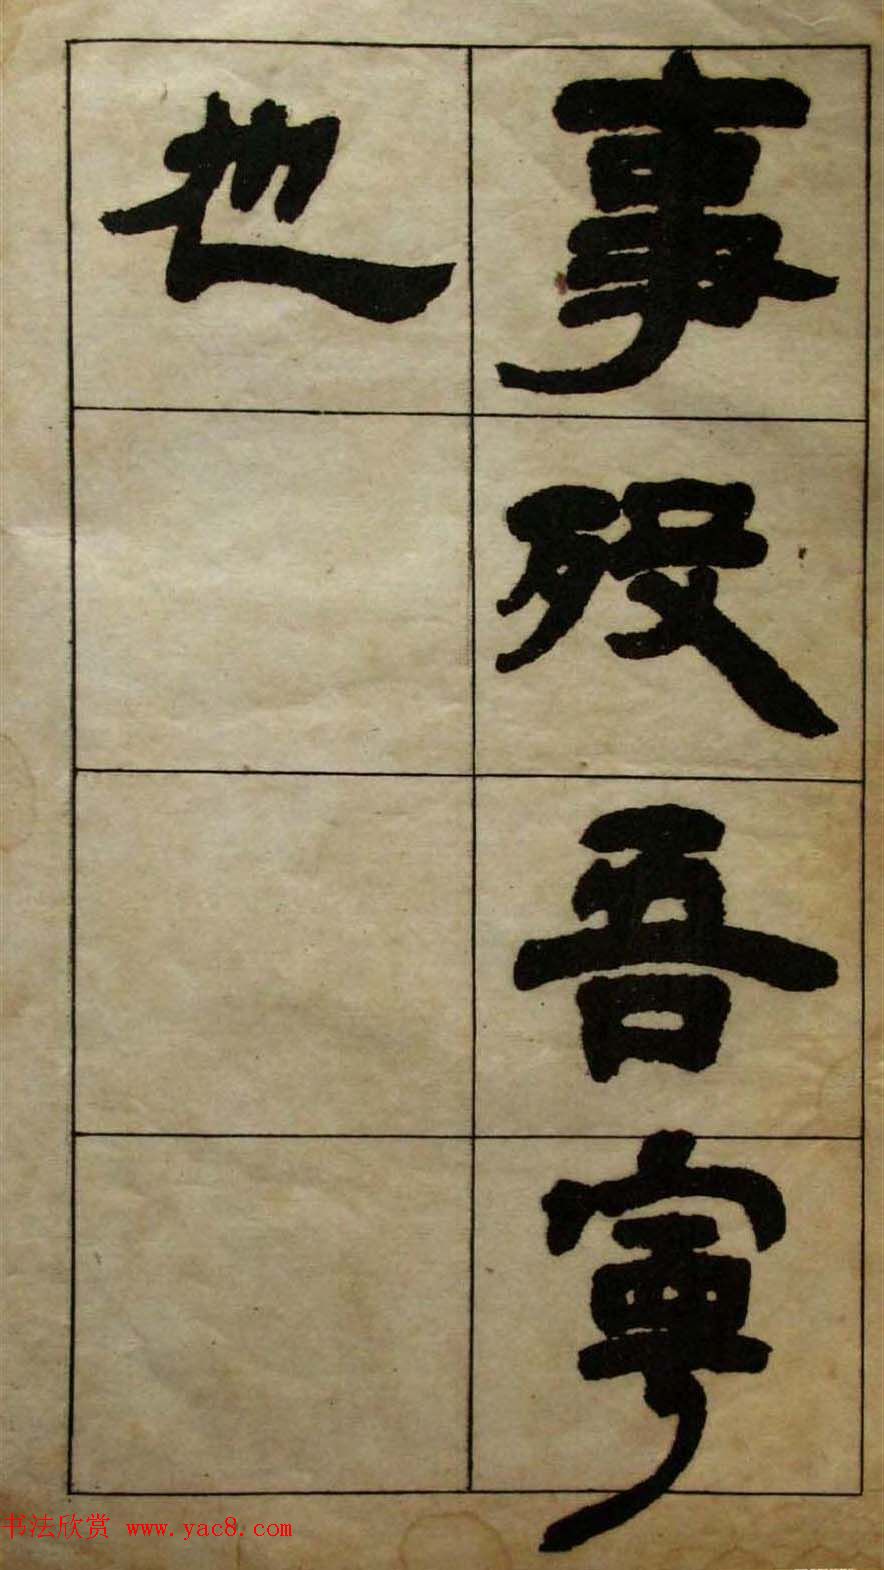 事殁吾寧
也
书法欣赏 www.yac8.com